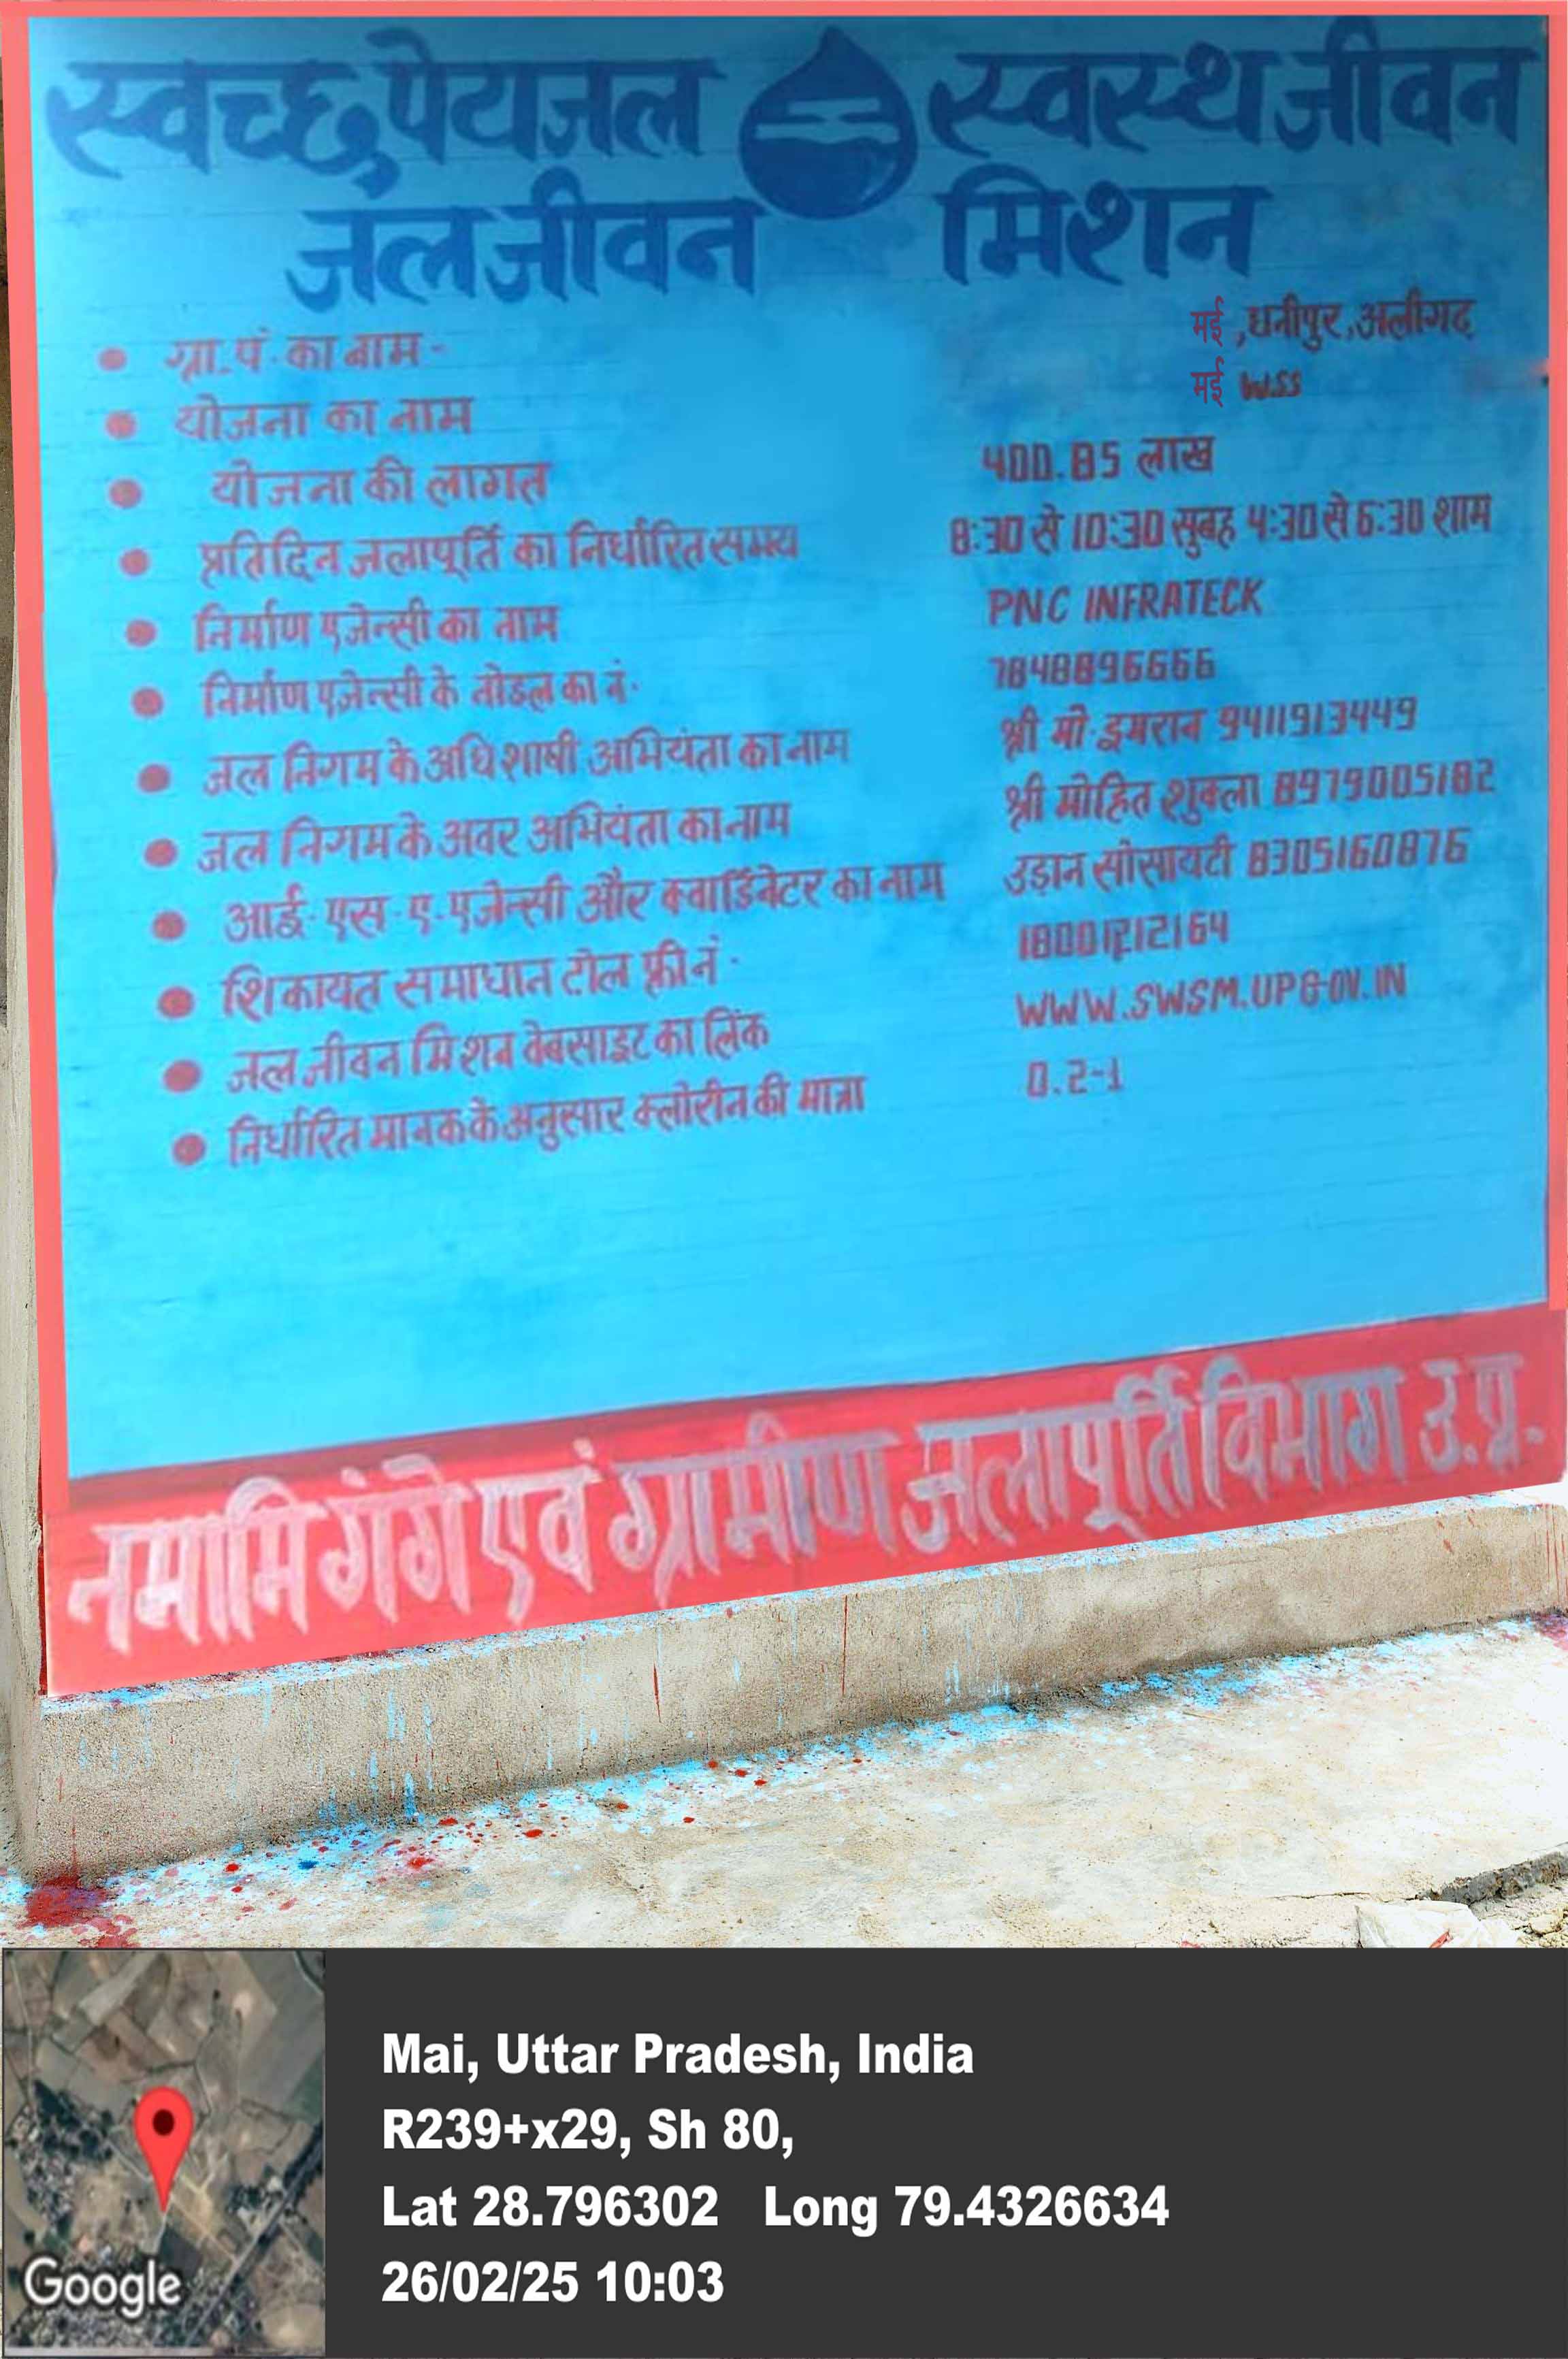 स्वच्छ पेयजल स्वस्थ जीवन
जल जीवन मिशन
ग्रा. पं. का नाम - मई ,धनीपुर,अलीगढ़
योजना का नाम मई W.SS
योजना की लागत 400.85 लाख
प्रतिदिन जलापूर्ति का निर्धारित समय 8:30 से 10:30 सुबह 4:30 से 6:30 शाम
निर्माण एजेन्सी का नाम PNC INFRATECK
निर्माण एजेन्सी के नोडल का नं. 7848896666
जल निगम के अधिशाषी अभियंता का नाम श्री मो. इमरान 9411913449
जल निगम के अवर अभियंता का नाम श्री मोहित शुक्ला 8979005182
आई. एस. ए. एजेन्सी और क्वार्डिनेटर का नाम उड़ान सोसायटी 8305160876
शिकायत समाधान टोल फ्री नं.
जल जीवन मिशन वेबसाइट का लिंक WWW.SWSM.UPGOV.IN
निर्धारित मानक के अनुसार क्लोरीन की मात्रा 0.2-1
नमामि गंगे एवं ग्रामीण जलापूर्ति विभाग उ.प्र.
Google
Mai, Uttar Pradesh, India
R239+x29, Sh 80,
Lat 28.796302 Long 79.4326634
26/02/25 10:03